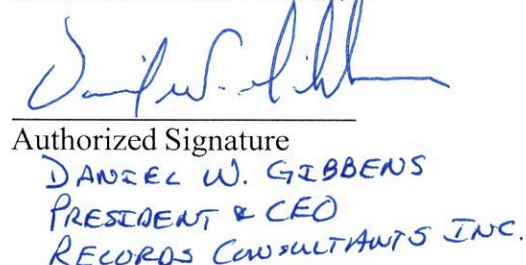 Authorized Signature
DANIEL W. GIBBENS
PRESIDENT & CEO
RECORDS CONSULTANTS INC.